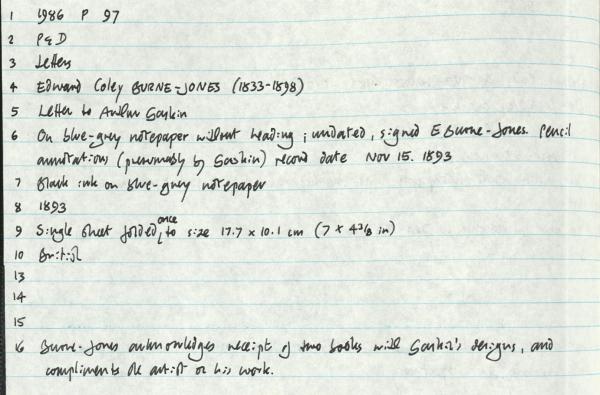 1 1986 P 97
2 P&D
3 Letters
4 Edward Coley BURNE-JONES (1833-1898)
5 Letter to Arthur Gaskin
6 On blue-grey notepaper without heading; undated, signed E Burne-Jones. Pencil
annotations (presumably by Gaskin) record date Nov 15. 1893
7 Black ink on blue-grey notepaper
8 1893
9 Single sheet folded once to size 17.7 x 10.1 cm (7 x 4 3/8 in)
10 British
13
14
15
16 Burne-Jones acknowledges receipt of two books with Gaskin's designs, and
compliments the artist on his work.